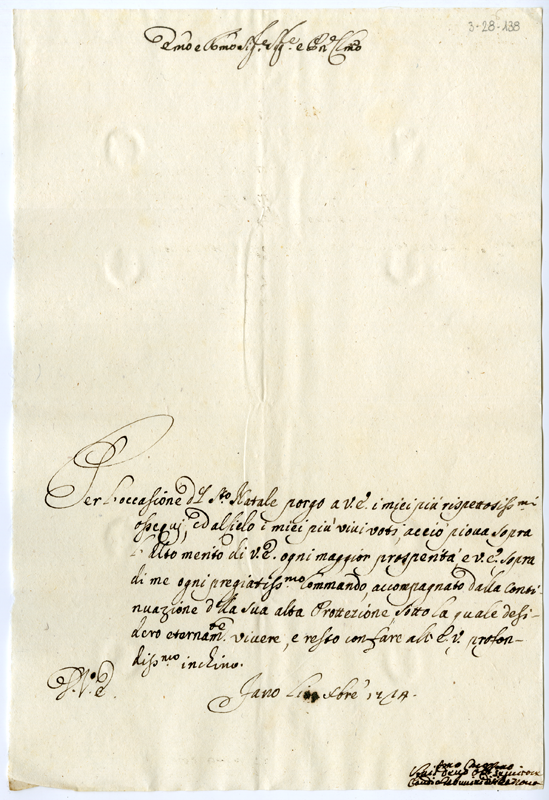 3-28-138
Per l'occasione del Sto Natale porgo a V.E. i miei più rispettosissmi
ossequj, ed al Cielo i miei più vivi voti, acciò piova sopra
l'alto merito di V.E. ogni maggior prosperità e V.E. sopra
di me ogni pregiatissmo Commando, accompagnato dalla Conti-
nuazione della sua alta Prottezione, sotto la quale desi-
dero eternamte vivere, e resto con fare all'E.V. profon-
dissmo inchino.
Xbre 1714.